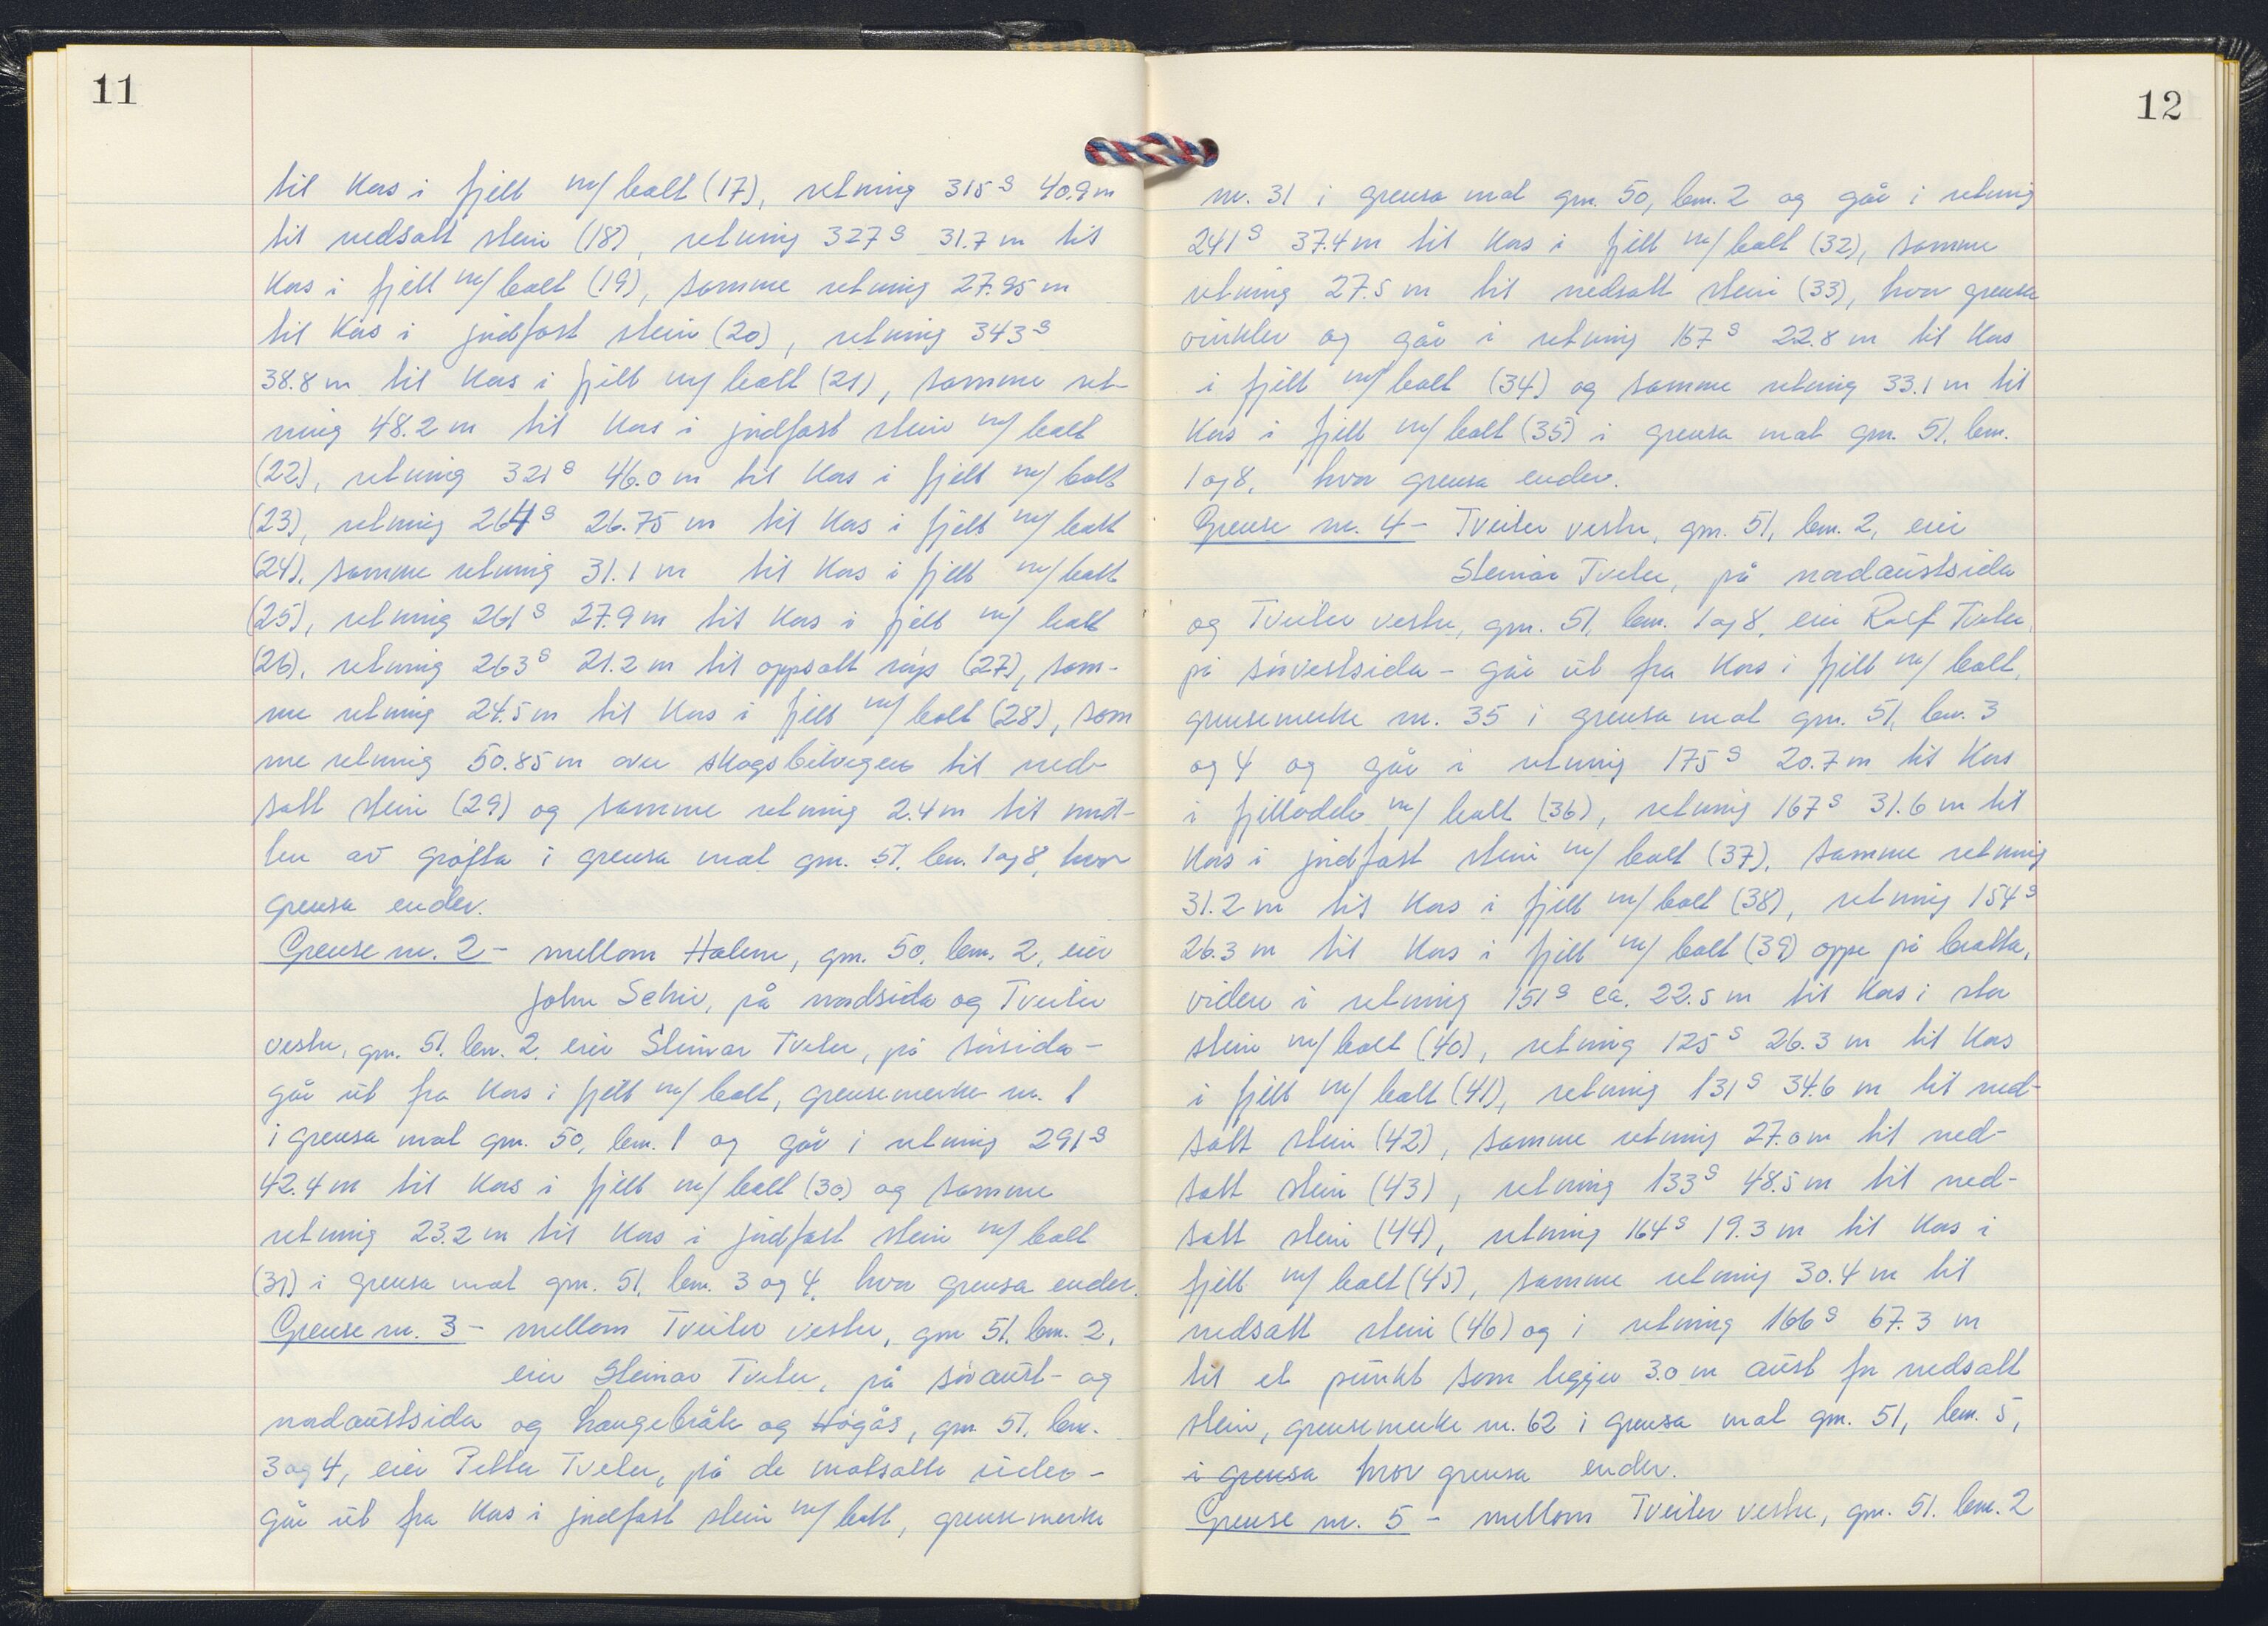 11
til kors i fjell m/ bolt (17), retning 315g 40.9 m
til nedsatt stein (18), retning 327g 31.7 m til
kors i fjell m/ bolt (19), samme retning 27.95 m
til kors i jordfast stein (20), retning 343g
38.8 m til kors i fjell m/ bolt (21), samme ret-
ning 48.2 m til kors i jordfast stein m/ bolt
(22), retning 321g 46.0 m til kors i fjell m/ bolt
(23), retning 264g 26.75 m til kors i fjell m/ bolt
(24), samme retning 31.1 m til kors i fjell m/ bolt
(25), retning 261g 27.9 m til kors i fjell m/ bolt
(26), retning 263g 21.2 m til oppsatt røys (27), sam-
me retning 24.5 m til kors i fjell m/ bolt (28), sam
me retning 50.85 m over skogsbilvegen til ned-
satt stein (29) og samme retning 2.4 m til mid-
ten av grøfta i grensa mot gnr. 51, bnr. 1 og 8, hvor
grensa ender.
Grense nr. 2 - mellom Holene, gnr. 50, bnr. 2, eier
John , på nordsida og Tveiter
vestre, gnr. 51, bnr. 2, eier Steinar Tveter, på sørsida -
går ut fra kors i fjell m/ bolt, grensemerke nr. 1
i grensa mot gnr. 50, bnr. 1 og går i retning 291g
42.4 m til kors i fjell m/ bolt (30) og samme
retning 23.2 m til kors i jordfast stein m/ bolt
(31) i grensa mot gnr. 51, bnr. 3 og 4, hvor grensa ender.
Grense nr. 3 - mellom Tveiter vestre, gnr 51, bnr. 2,
eier Steinar Tveter, på søraust- og
nordaustsida og Langebråte og Høgås, gnr. 51, bnr.
3 og 4, eier Petter Tveter, på de motsatte sider -
går ut fra kors i jordfast stein m/ bolt, grensemerke
12
nr. 31 i grensa mot gnr. 50, bnr. 2 og går i retning
241g 37.4 m til kors i fjell m/ bolt (32), samme
retning 27.5 m til nedsatt stein (33), hvor grensa
vinkler og går i retning 167g 22.8 m til kors
i fjell m/ bolt (34) og samme retning 33.1 m til
kors i fjell m/ bolt (35) i grensa mot gnr. 51, bnr.
1 og 8, hvor grensa ender.
Grense nr. 4 - Tveiter vestre, gnr. 51, bnr. 2, eier
Steinar Tveter, på nordaustsida
og Tveiter vestre, gnr. 51, bnr. 1 og 8, eier Rolf Tveter,
på sørvestsida - går ut fra kors i fjell m/ bolt,
grensemerke nr. 35 i grensa mot gnr. 51, bnr. 3
og 4 og går i retning 175g 20.7 m til kors
i fjellodde m/ bolt (36), retning 167g 31.6 m til
kors i jordfast stein m/ bolt (37), samme retning
31.2 m til kors i fjell m/ bolt (38), retning 154g
26.3 m til kors i fjell m/ bolt (39) oppe på bratta,
videre i retning 151g ca. 22.5 m til kors i stor
stein m/ bolt (40), retning 125g 26.3 m til kors
i fjell m/ bolt (41), retning 131g 34.6 m til ned-
satt stein (42), samme retning 27.0 m til ned-
satt stein (43), retning 133g 48.5 m til ned-
satt stein (44), retning 164g 19.3 m til kors i
fjell m/ bolt (45), samme retning 30.4 m til
nedsatt stein (46) og i retning 166g 67.3 m
til et punkt som ligger 3.0 m aust for nedsatt
stein, grensemerke nr. 62 i grensa mot gnr. 51, bnr. 5,
i grensa hvor grensa ender.
Grense nr. 5 - mellom Tveiter vestre, gnr. 51. bnr. 2